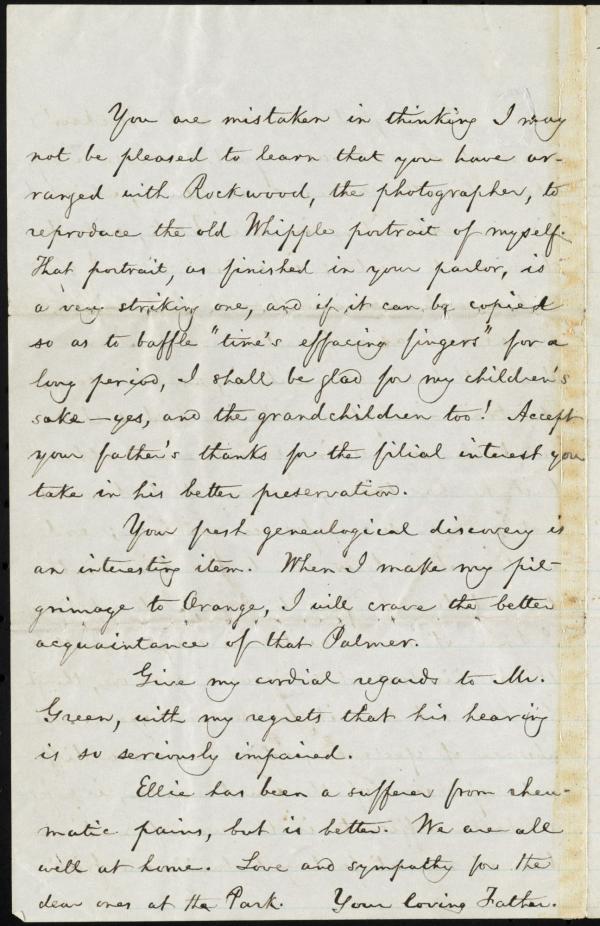 You are mistaken in thinking I may
not be pleased to learn that you have ar-
ranged with Rockwood, the photographer, to
reproduce the old Whipple portrait of myself.
That portrait, as finished in your parlor, is
a very striking one, and if it can be copied
so as to baffle "time's effacing fingers" for a
long period, I shall be glad for my children's
sake—yes, and the grandchildren too! Accept
your father's thanks for the filial interest you
take in his better preservation.
Your fresh genealogical discovery is
an interesting item. When I make my pil-
grimage to Orange, I will crave the better
acquaintance of that Palmer.
Give my cordial regards to Mr.
Green, with my regrets that his hearing
is so seriously impaired.
Ellie has been a sufferer from rheu-
matic pains, but is better. We are all
well at home. Love and sympathy for the
dear ones at the Park. Your loving Father.